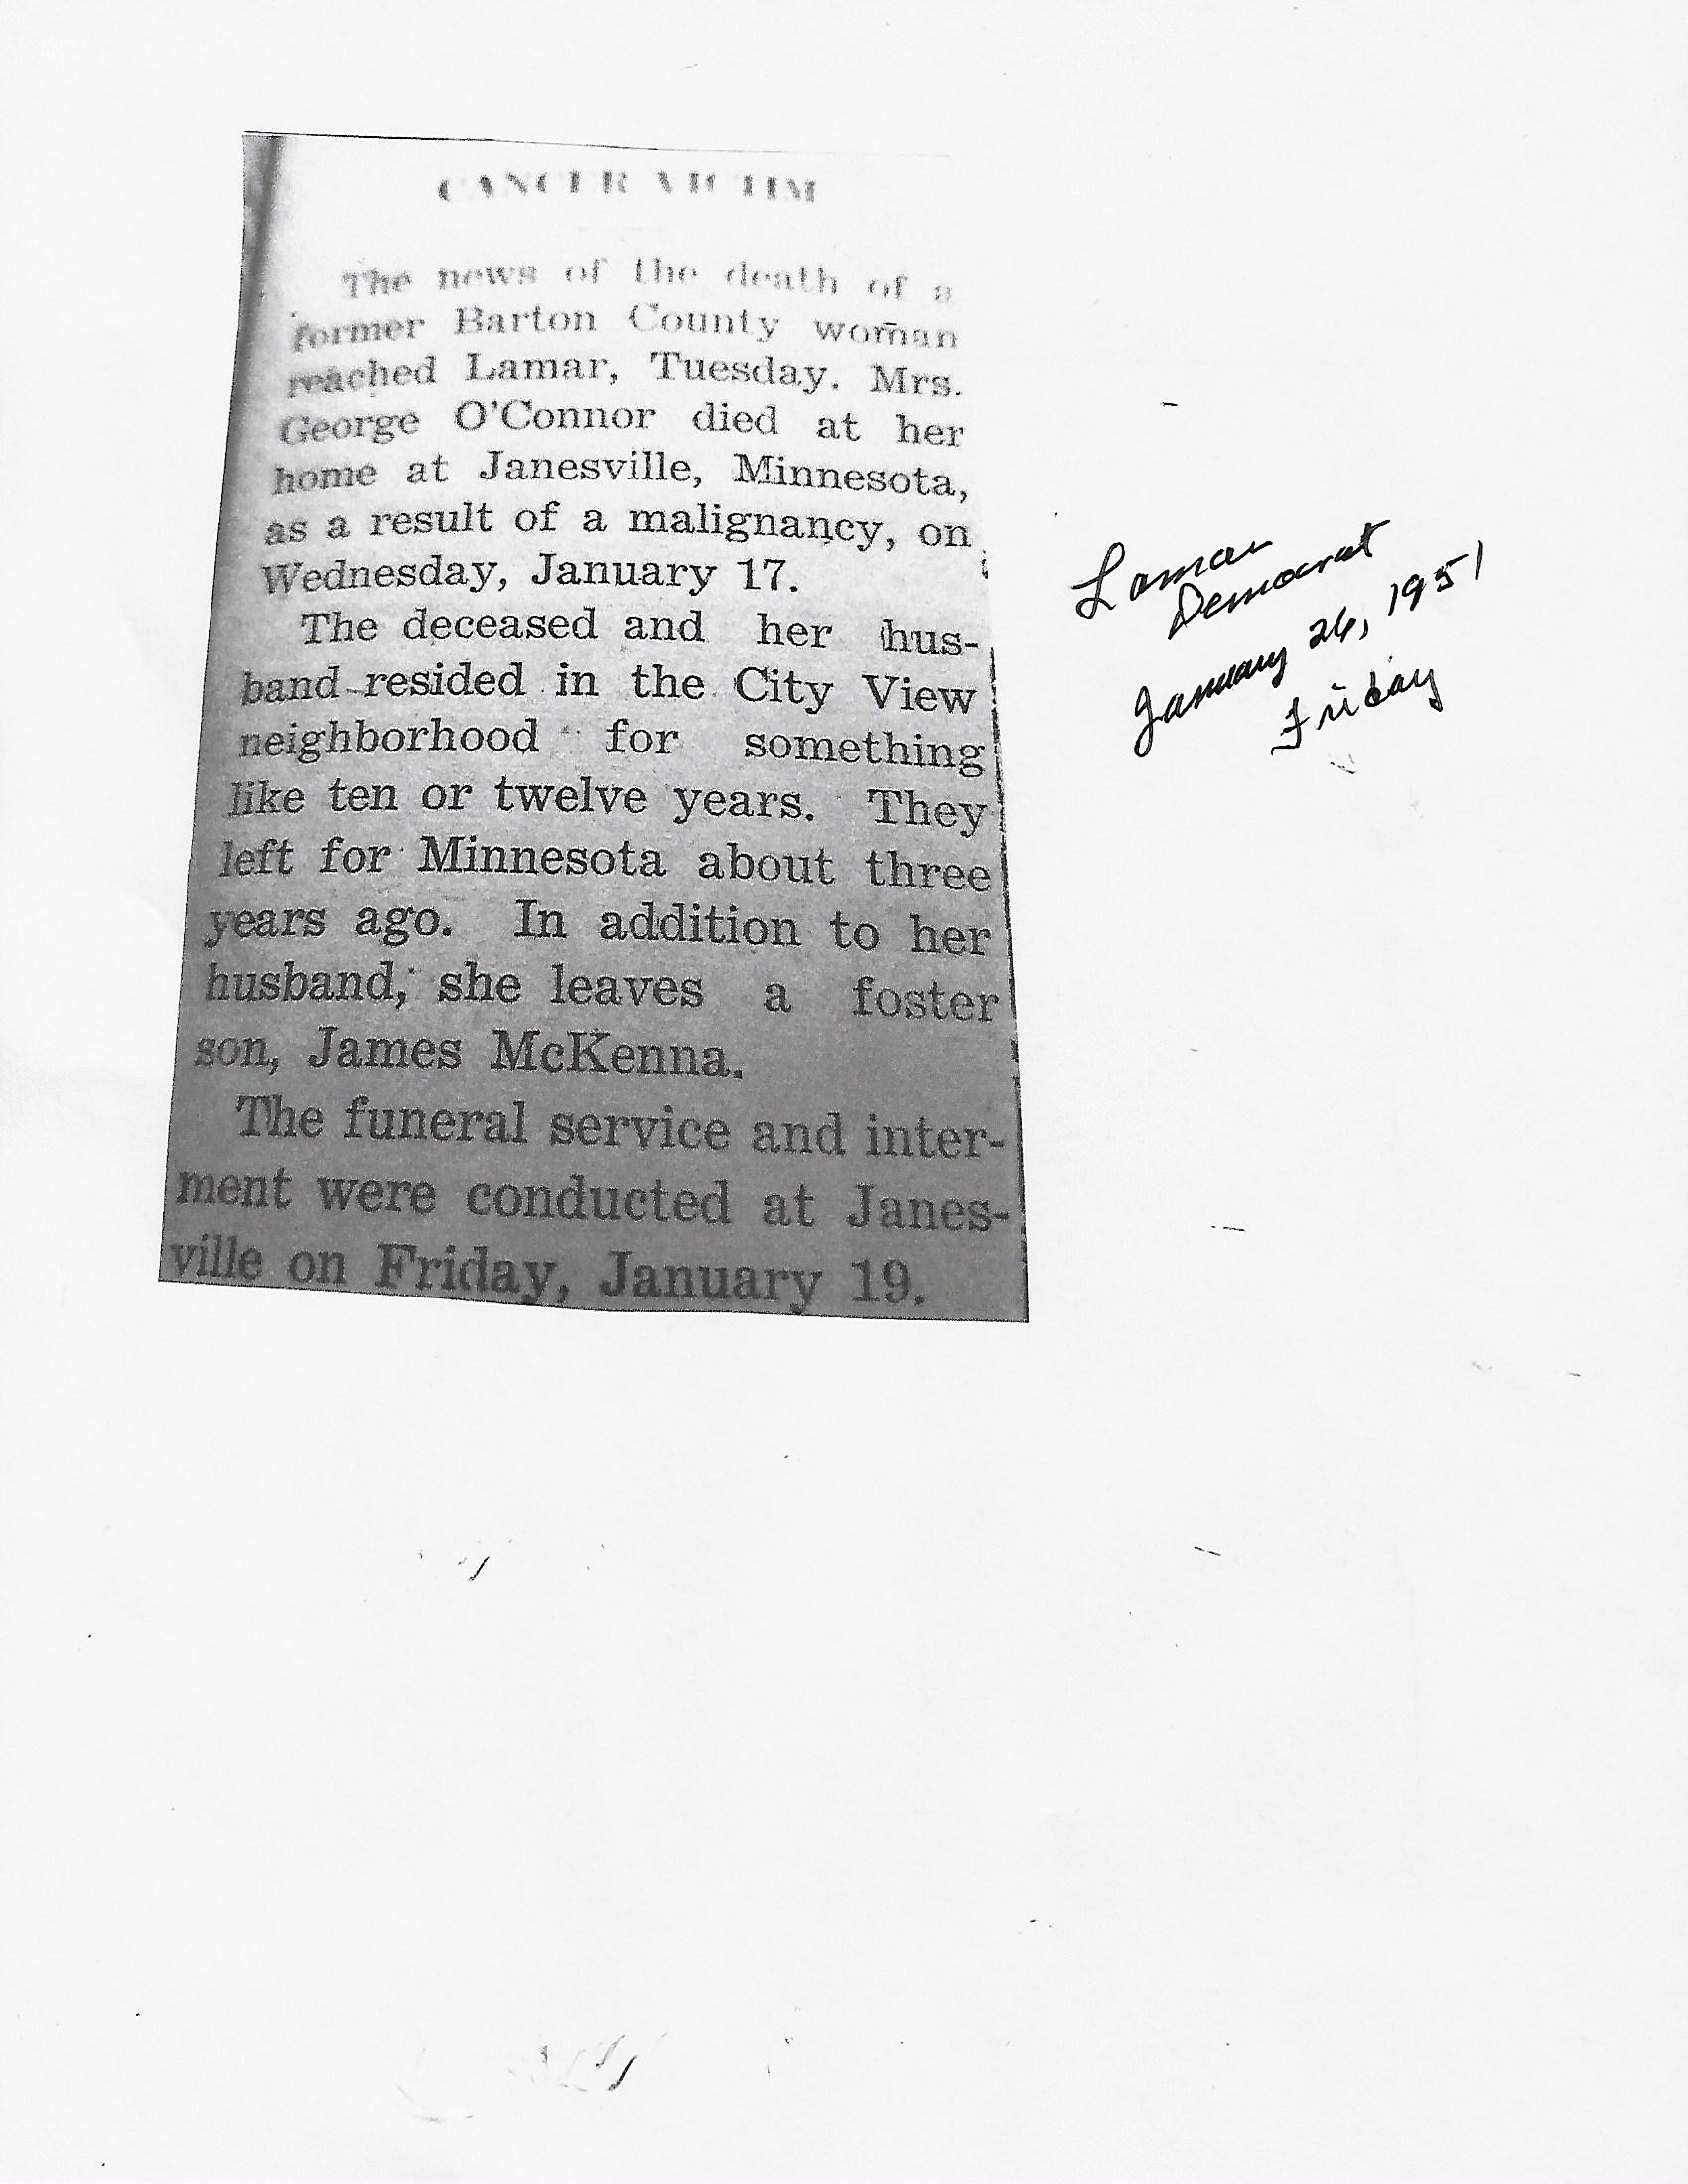 CANCER VICTIM
The news of the death of a
former Barton County woman
reached Lamar, Tuesday. Mrs.
George O'Connor died at her
home at Janesville, Minnesota,
as a result of a malignancy, on
Wednesday, January 17.
The deceased and her hus-
band resided in the City View
neighborhood for something
like ten or twelve years. They
left for Minnesota about three
years ago. In addition to her
husband, she leaves a foster
son, James McKenna.
The funeral service and inter-
ment were conducted at Janes-
ville on Friday, January 19.
Lamar
Democrat
January 26, 1951
Friday